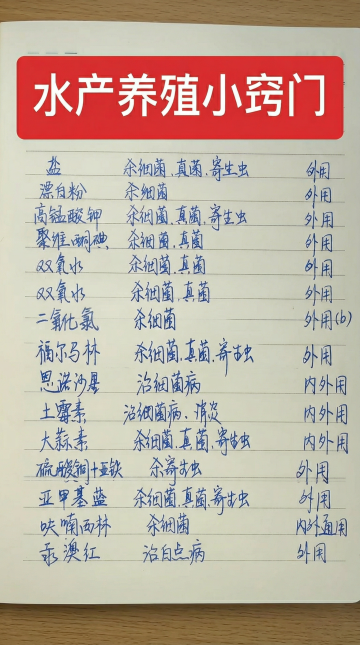 水产养殖小窍门
盐 杀细菌、真菌、寄生虫 外用
漂白粉 杀细菌 外用
高锰酸钾 杀细菌、真菌、寄生虫 外用
聚维酮碘 杀细菌、真菌 外用
双氧水 杀细菌、真菌 外用
双氧水 杀细菌、真菌 外用
二氧化氯 杀细菌 外用(b)
福尔马林 杀细菌、真菌、寄生虫 外用
恩诺沙星 治细菌病 内外用
土霉素 治细菌病、消炎 内外用
大蒜素 杀细菌、真菌、寄生虫 内外用
硫酸铜+亚铁 杀寄生虫 外用
亚甲基蓝 杀细菌、真菌、寄生虫 外用
呋喃西林 杀细菌 内外通用
汞溴红 治白点病 外用